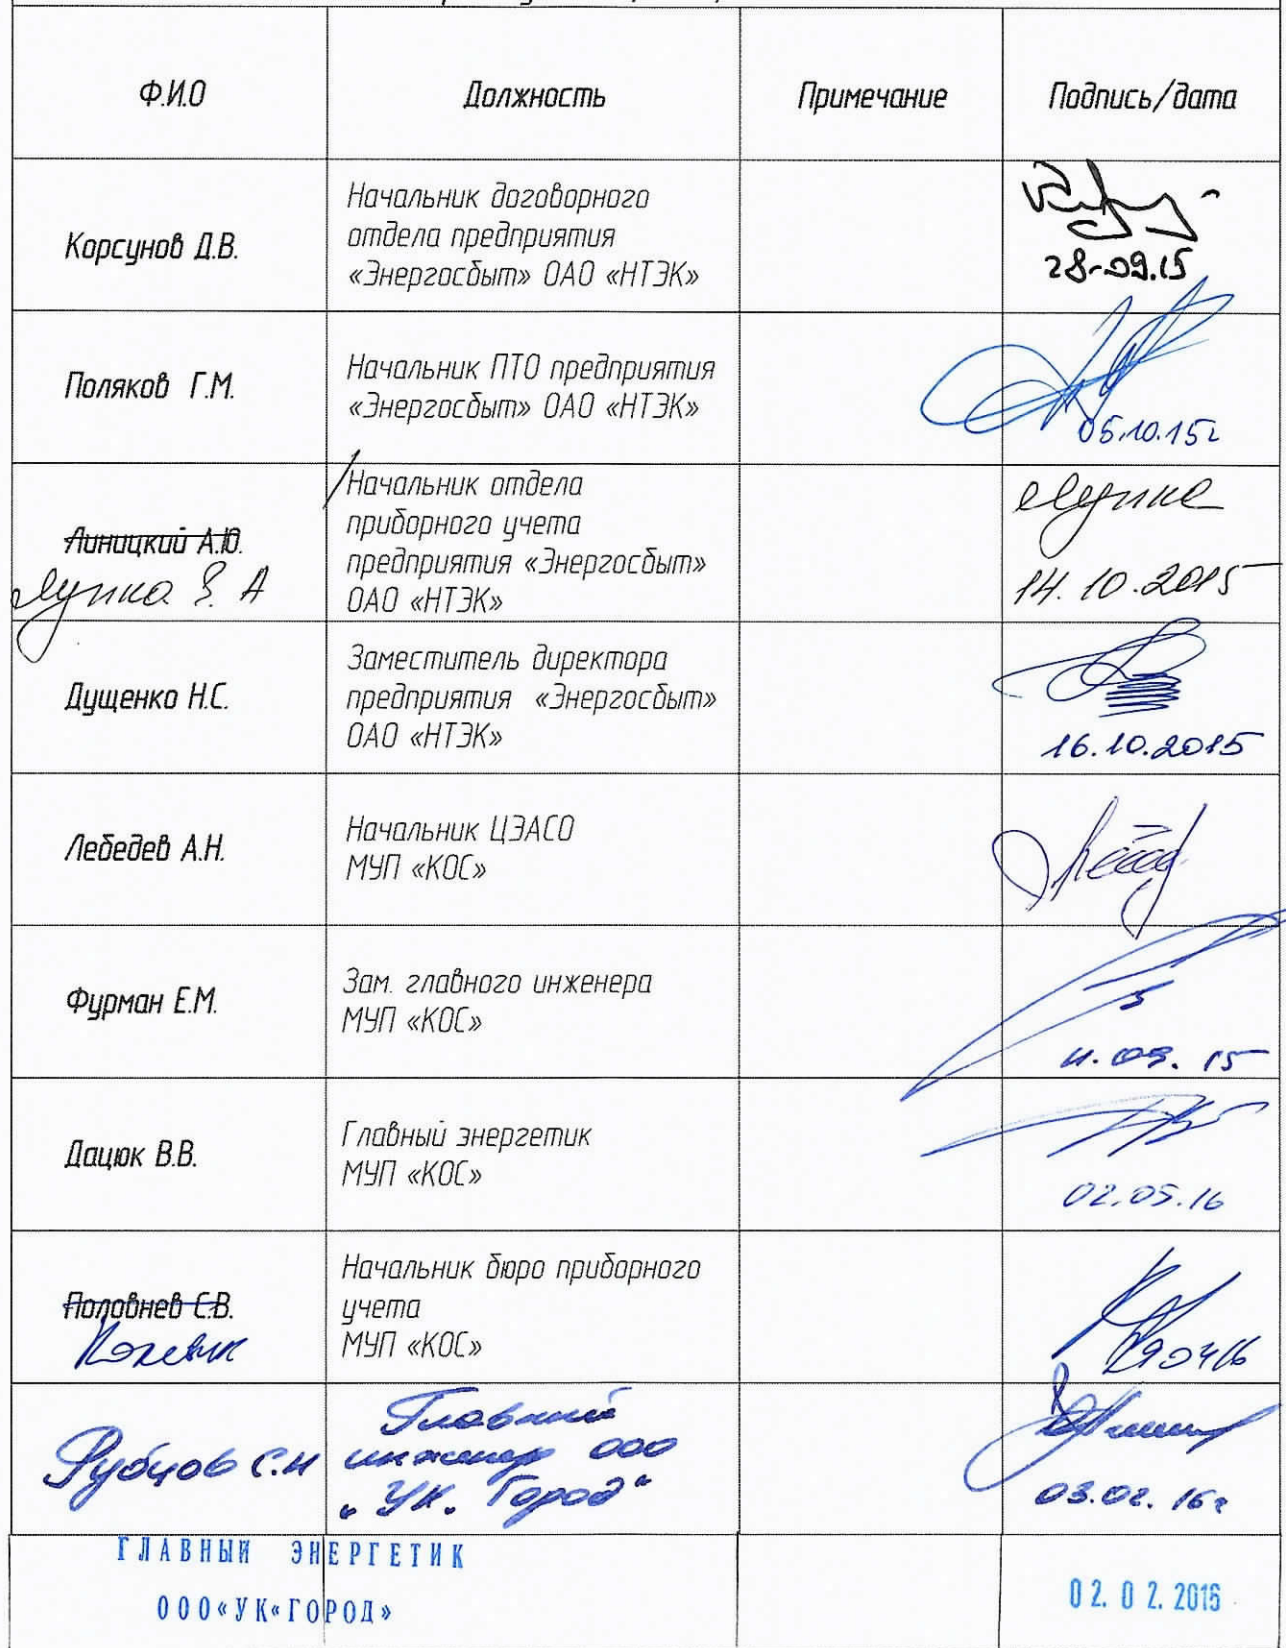 Ф.И.О
Должность
Примечание
Подпись/дата
Корсунов Д.В.
Начальник договорного
отдела предприятия
«Энергосбыт» ОАО «НТЭК»
28.09.15
Поляков Г.М.
Начальник ПТО предприятия
«Энергосбыт» ОАО «НТЭК»
05.10.15г
Линицкий А.Ю.
Лупка З. А
Начальник отдела
приборного учета
предприятия «Энергосбыт»
ОАО «НТЭК»
14.10.2015
Дущенко Н.С.
Заместитель директора
предприятия «Энергосбыт»
ОАО «НТЭК»
16.10.2015
Лебедев А.Н.
Начальник ЦЭАСО
МУП «КОС»
Фурман Е.М.
Зам. главного инженера
МУП «КОС»
11.09.15
Дацюк В.В.
Главный энергетик
МУП «КОС»
02.05.16
Половнев С.В.
Начальник бюро приборного
учета
МУП «КОС»
Рубцов С.Н
Главный
инженер ООО
"УК. Город"
03.02.16г
ГЛАВНЫЙ ЭНЕРГЕТИК
ООО«УК«ГОРОД»
02.02.2016